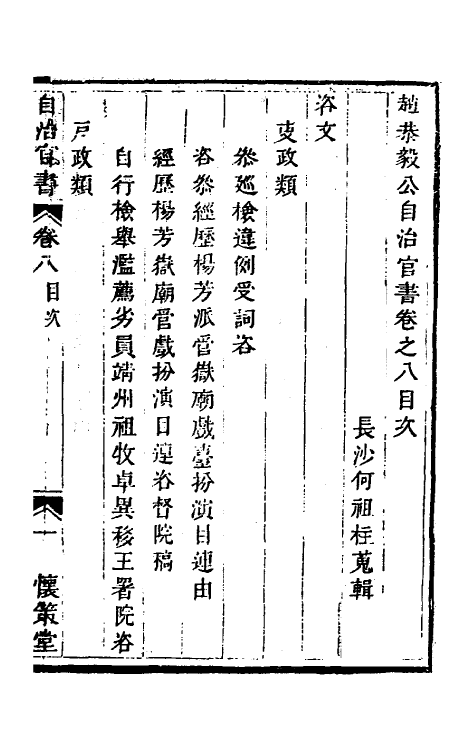 趙恭毅公自治官書卷之八目次
長沙何祖柱蒐輯
咨文
吏政類
叅廵檢違例受詞咨
咨叅經歷楊芳派管嶽廟戲臺扮演目連由
經歷楊芳嶽廟管戲扮演目連咨督院稿
自行檢舉濫薦劣員靖州祖牧卓異移王署院咨
戸政類
自治官書
卷八目次
一
懷策堂